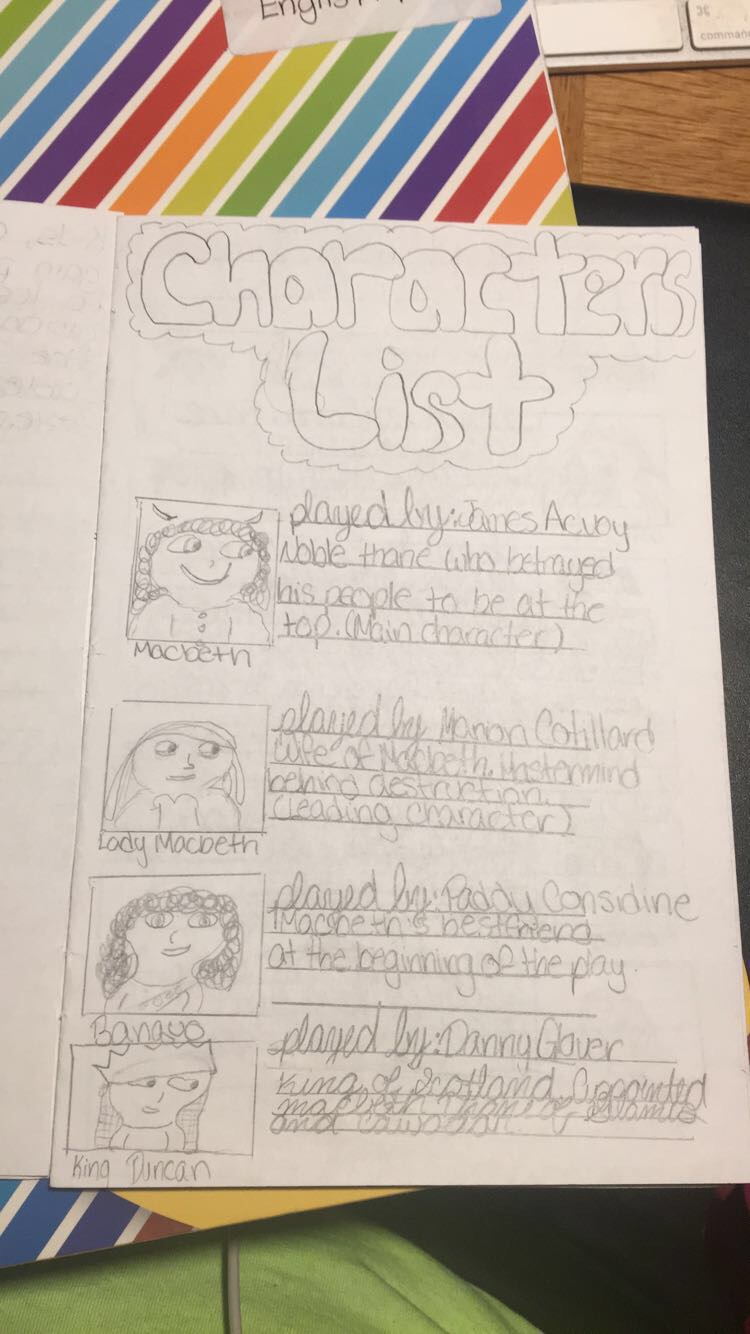 English
⌘
command
Characters
List
played by: James Acvoy
Noble thane who betrayed
his people to be at the
top. (Main character)
Macbeth
played by Marion Cotillard
wife of Macbeth. Mastermind
behind destruction.
(Leading character)
Lady Macbeth
played by: Paddy Considine
Macbeth's bestfriend
at the beginning of the play.
Banquo
played by: Danny Glover
King of Scotland. Appointed
macbeth thane of Glamis
and Cawdor.
King Duncan